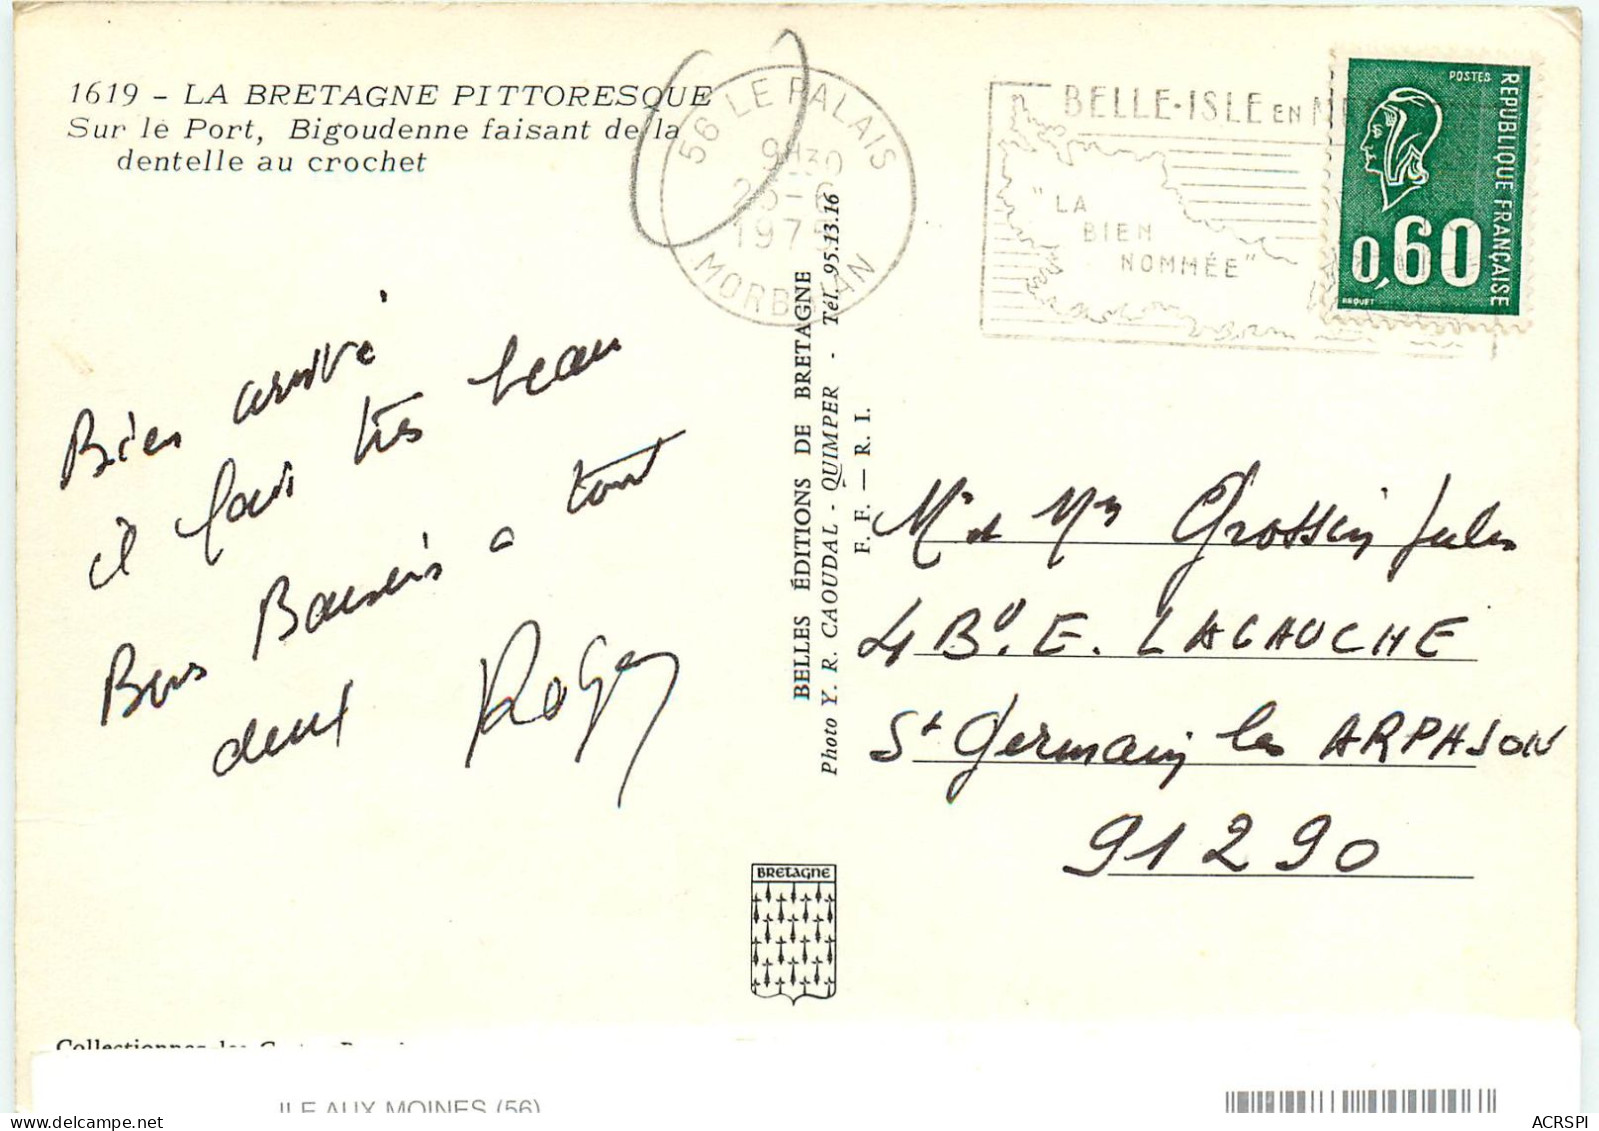 1619 - LA BRETAGNE PITTORESQUE
Sur le Port, Bigoudenne faisant de la
dentelle au crochet
56 LE PALAIS
9H30
1975
MORBIHAN
BELLE-ISLE EN MER
"LA
BIEN
NOMMÉE"
POSTES
REPUBLIQUE FRANÇAISE
0,60
BEQUET
Bien arrivé
il fait très beau
Bons Baisers a tout
deux Roger
BELLES ÉDITIONS DE BRETAGNE
Photo Y. R. CAOUDAL - QUIMPER - Tél. 95.13.16
F. F. — R. I.
Mr et Mm Grossin Jules
4 Bd. E. LACAUCHE
St Germain les ARPAJON
91290
BRETAGNE
Collectionnez les Cartes
ILE AUX MOINES (56)
ACRSPI